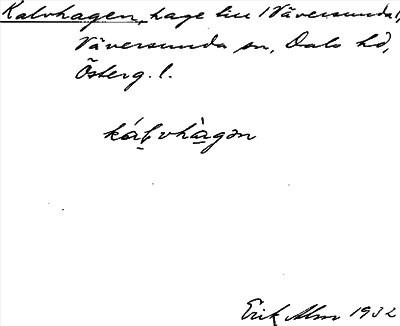 Kalvhagen, hage till 1 Väversunda 1,
Väversunda sn, Dals hd,
Österg. l.
kálvhàgǝn
Erik Alm 1932